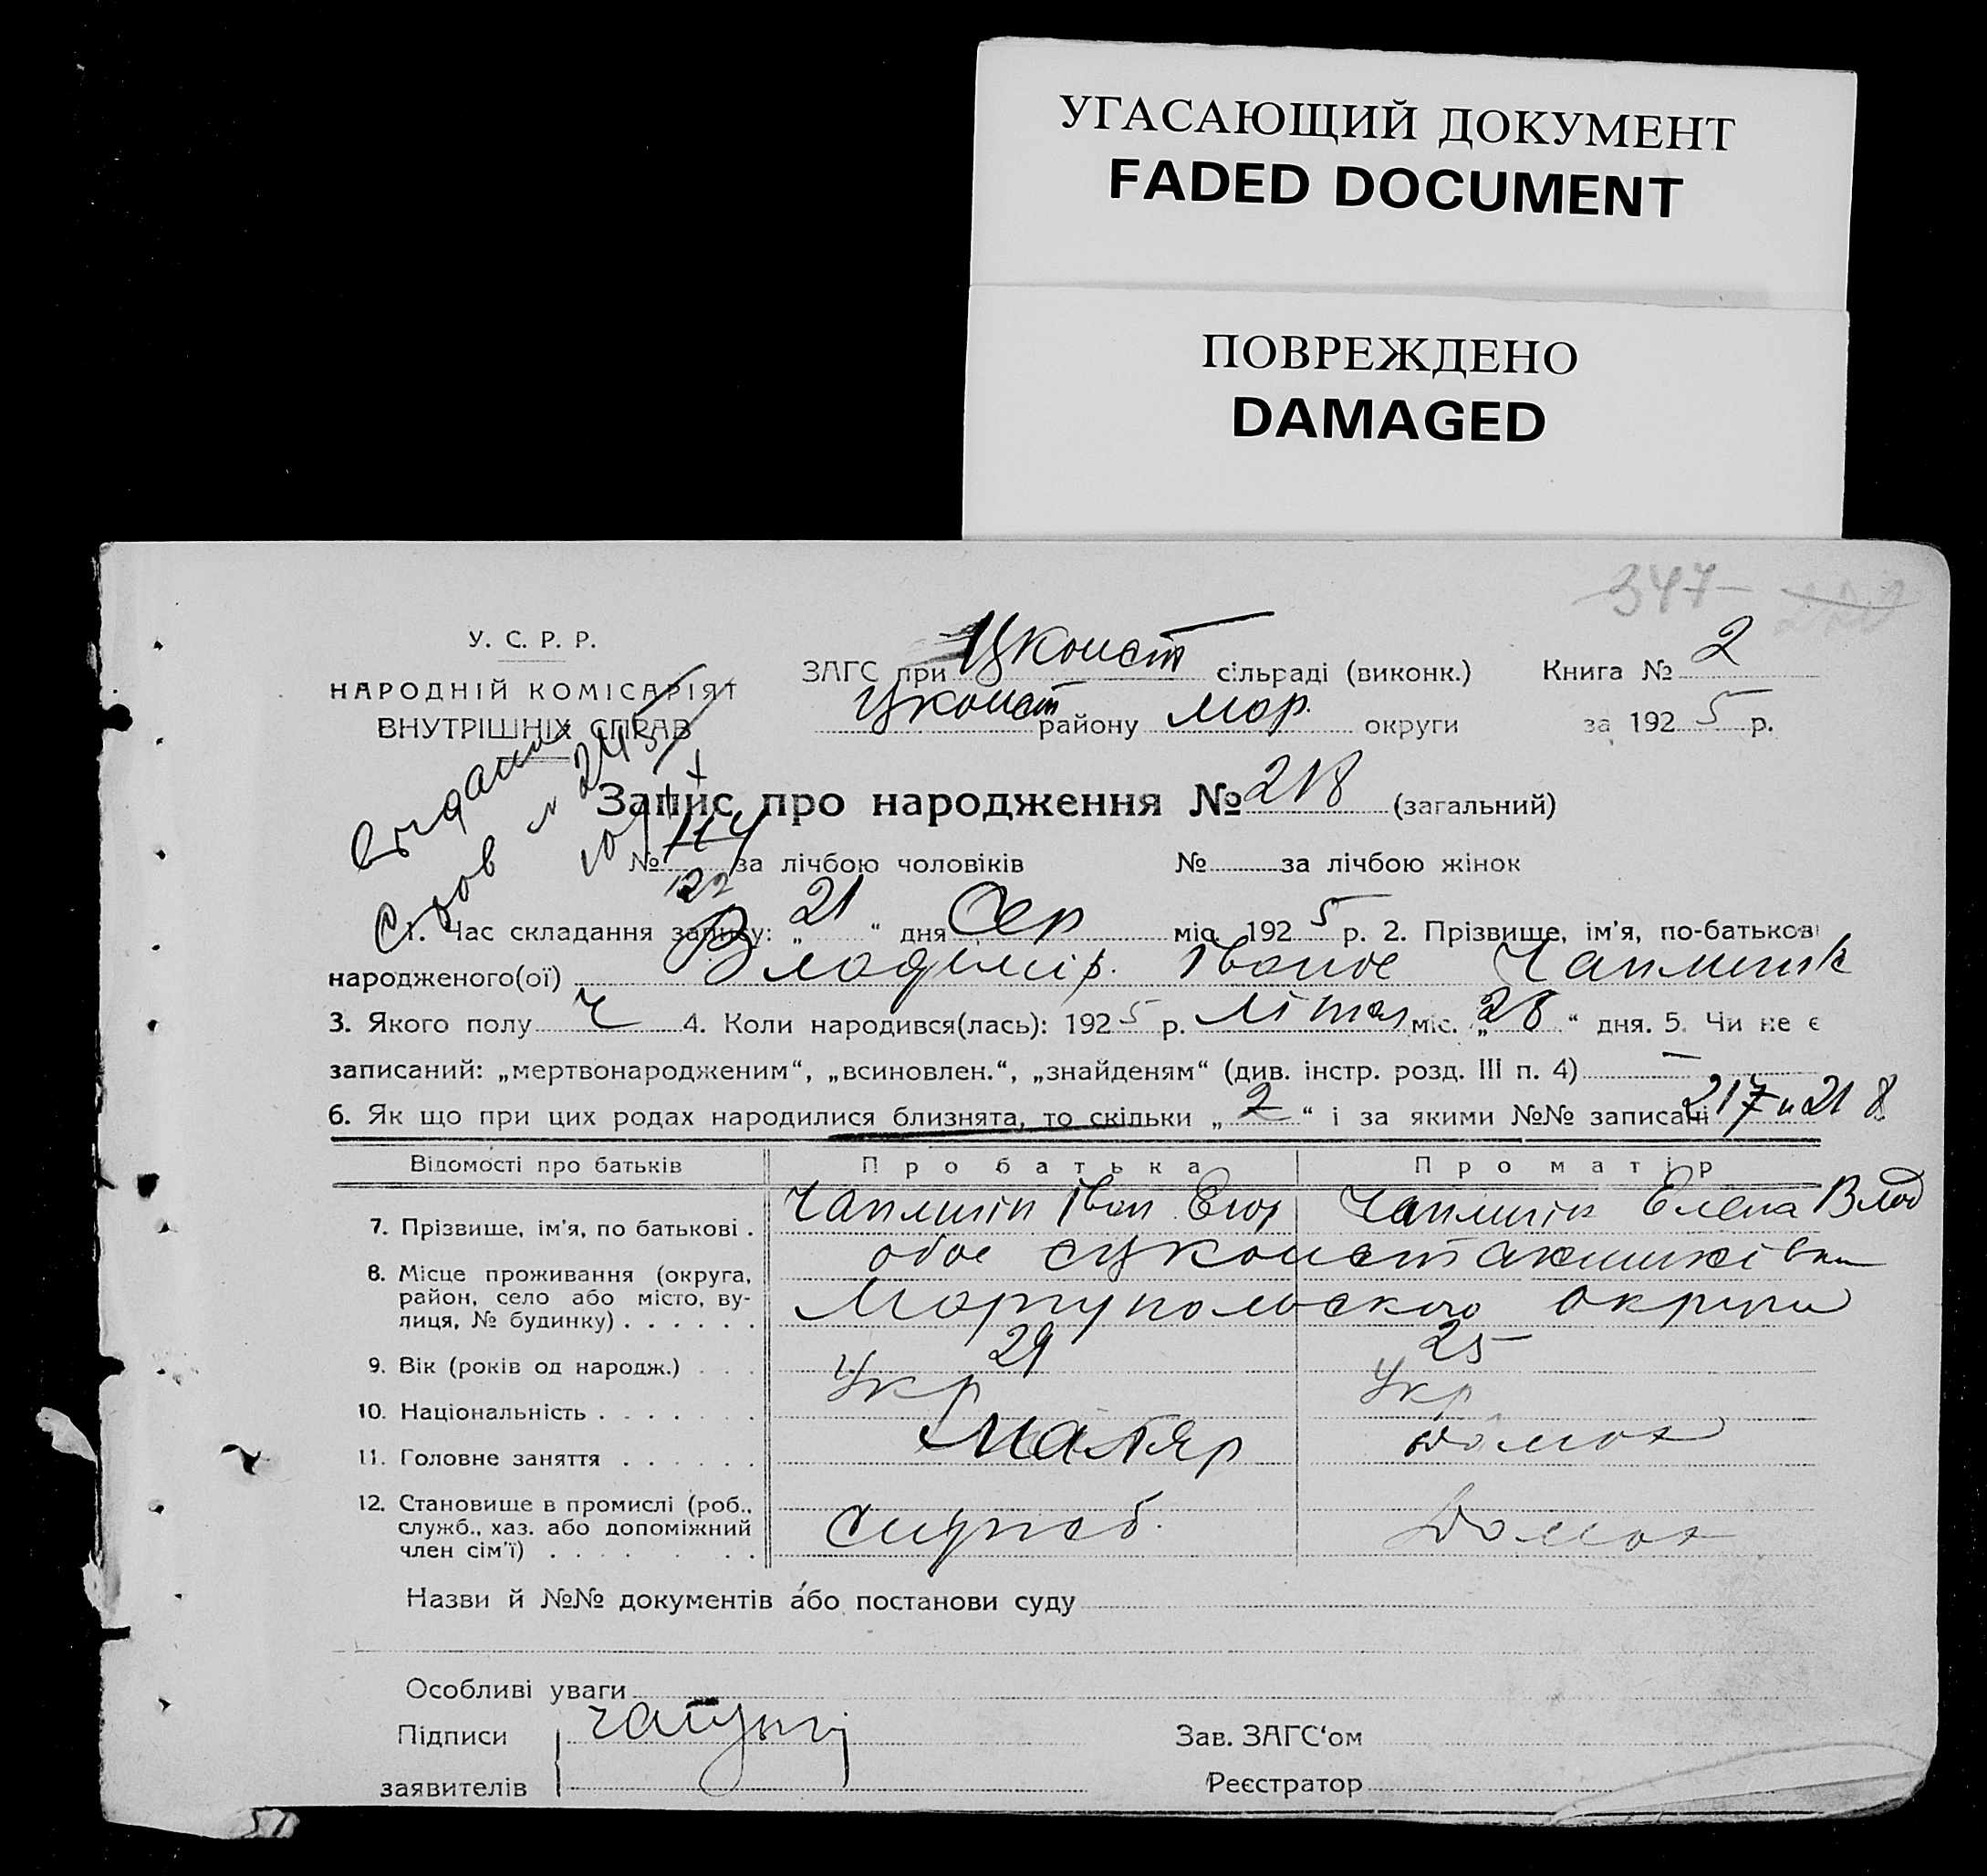 УГАСАЮЩИЙ ДОКУМЕНТ
FADED DOCUMENT
ПОВРЕЖДЕНО
DAMAGED
347
У. С. Р. Р.
НАРОДНІЙ КОМІСАРІЯТ
ВНУТРІШНІХ СПРАВ
ЗАГС при Цконст сільраді (виконк.) Книга № 2
Цконст району Мар. округи за 1925 р.
Запис про народження № 218 (загальний)
№ 114 за лічбою чоловіків № за лічбою жінок
122
1. Час складання запису: „21“ дня Сер міс. 1925 р. 2. Прізвище, ім'я, по-батькові
народженого(ої) Владимір. Іванов Чаплигін
3. Якого полу Ч 4. Коли народився(лась): 1925 р. Літня міс. „28“ дня. 5. Чи не є
записаний: „мертвонародженим“, „всиновлен.“, „знайденям“ (див. інстр. розд. III п. 4) —
6. Як що при цих родах народилися близнята, то скільки „2“ і за якими №№ записані 217 и 218
Відомості про батьків Про батька Про матір
7. Прізвище, ім'я, по батькові . Чаплигін Іван Егор Чаплигін Елена Влад
8. Місце проживання (округа, район, село або місто, вулиця, № будинку) . . . . . . обое
Маріупольского округи
9. Вік (років од народж.) . . . 29 25
10. Національність . . . . . . . Укр Укр
11. Головне заняття . . . . . . Маляр Домох
12. Становище в промислі (роб., служб., хаз. або допоміжний член сім'ї) . . . . . . . Служб. Домох
Назви й №№ документів або постанови суду
Особливі уваги
Підписи
заявителів
Зав. ЗАГС‘ом
Реєстратор